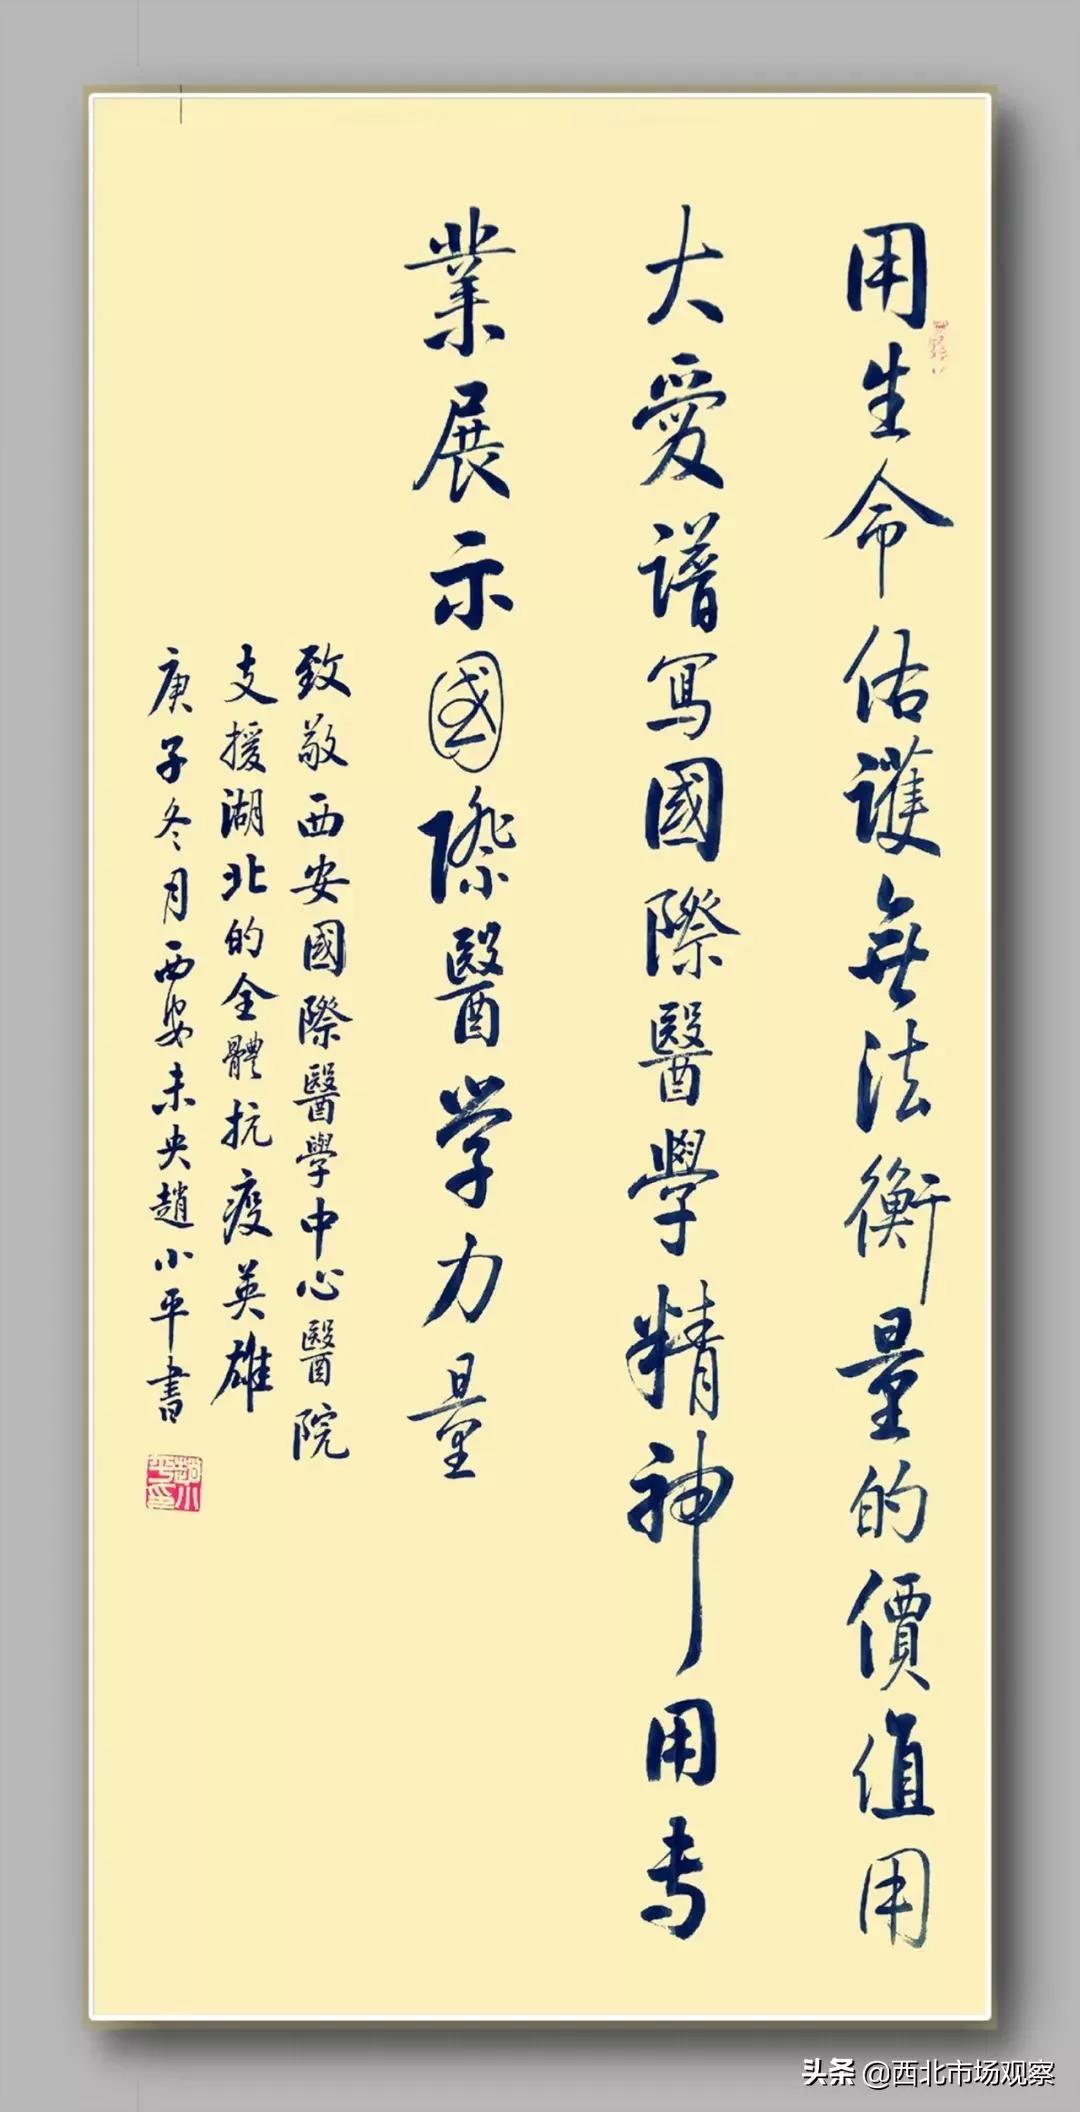 用生命佑護無法衡量的價值用
大愛譜寫國際醫學精神用专
業展示國際醫学力量
致敬西安國際醫學中心醫院
支援湖北的全體抗疫英雄
庚子冬月西安未央趙小平書
趙小平印
头条 @西北市场观察